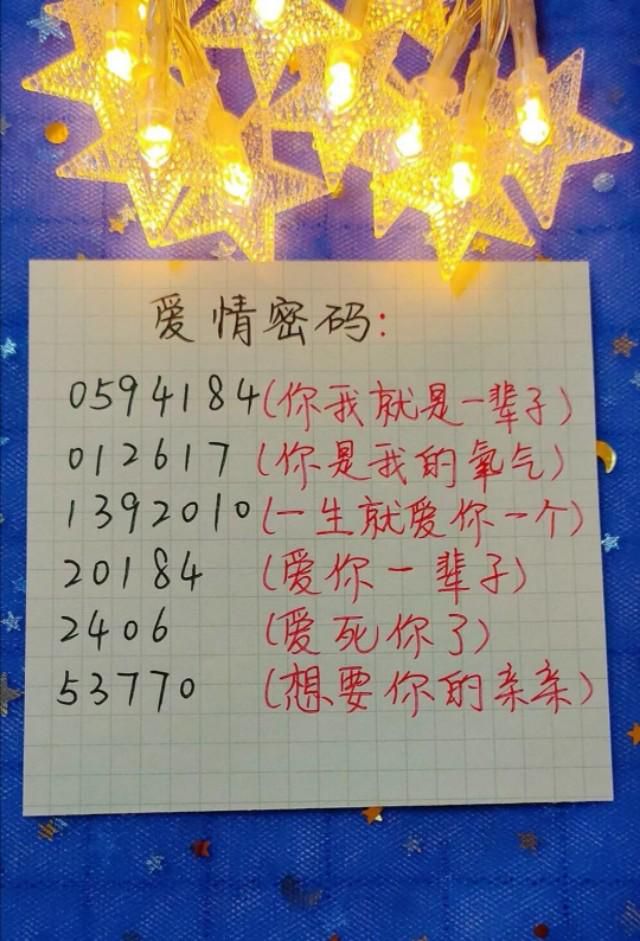 爱情密码:
0594184(你我就是一辈子)
012617(你是我的氧气)
1392010(一生就爱你一个)
20184(爱你一辈子)
2406(爱死你了)
53770(想要你的亲亲)